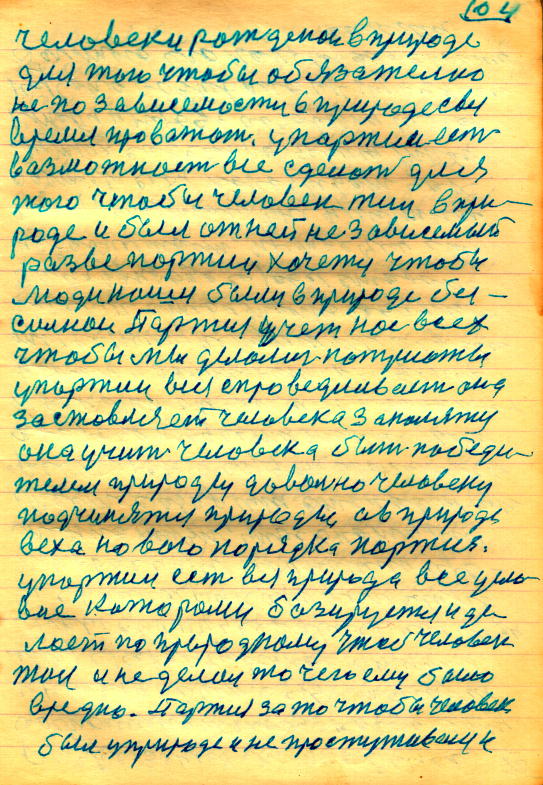 104
человеки рожденои в природе
для того чтобы обязателно
не по зависемости в природе свои
время проважат. упартии ест
вазможност все сделат для
того чтобы человек жил в при-
роде и был от ней не зависемый
разве партии хочетц чтобы
люди наши были в природе без-
силнои Партия учет нас всех
чтобы мы делолис патриоты
упартии вся справедливаст она
заставляет человека запомятц
она учит человека быт победи-
телем природы давол но человеку
подчинятц природы, а в природе
веха новаго порядка партия.
упартии ест вся природа все усло-
вие катарами базируетца и де-
лает по природному чтоб человек
жил и не делал то чего ему было
вредно. Партия за то чтобы человек
был у природе и не простуживалц и